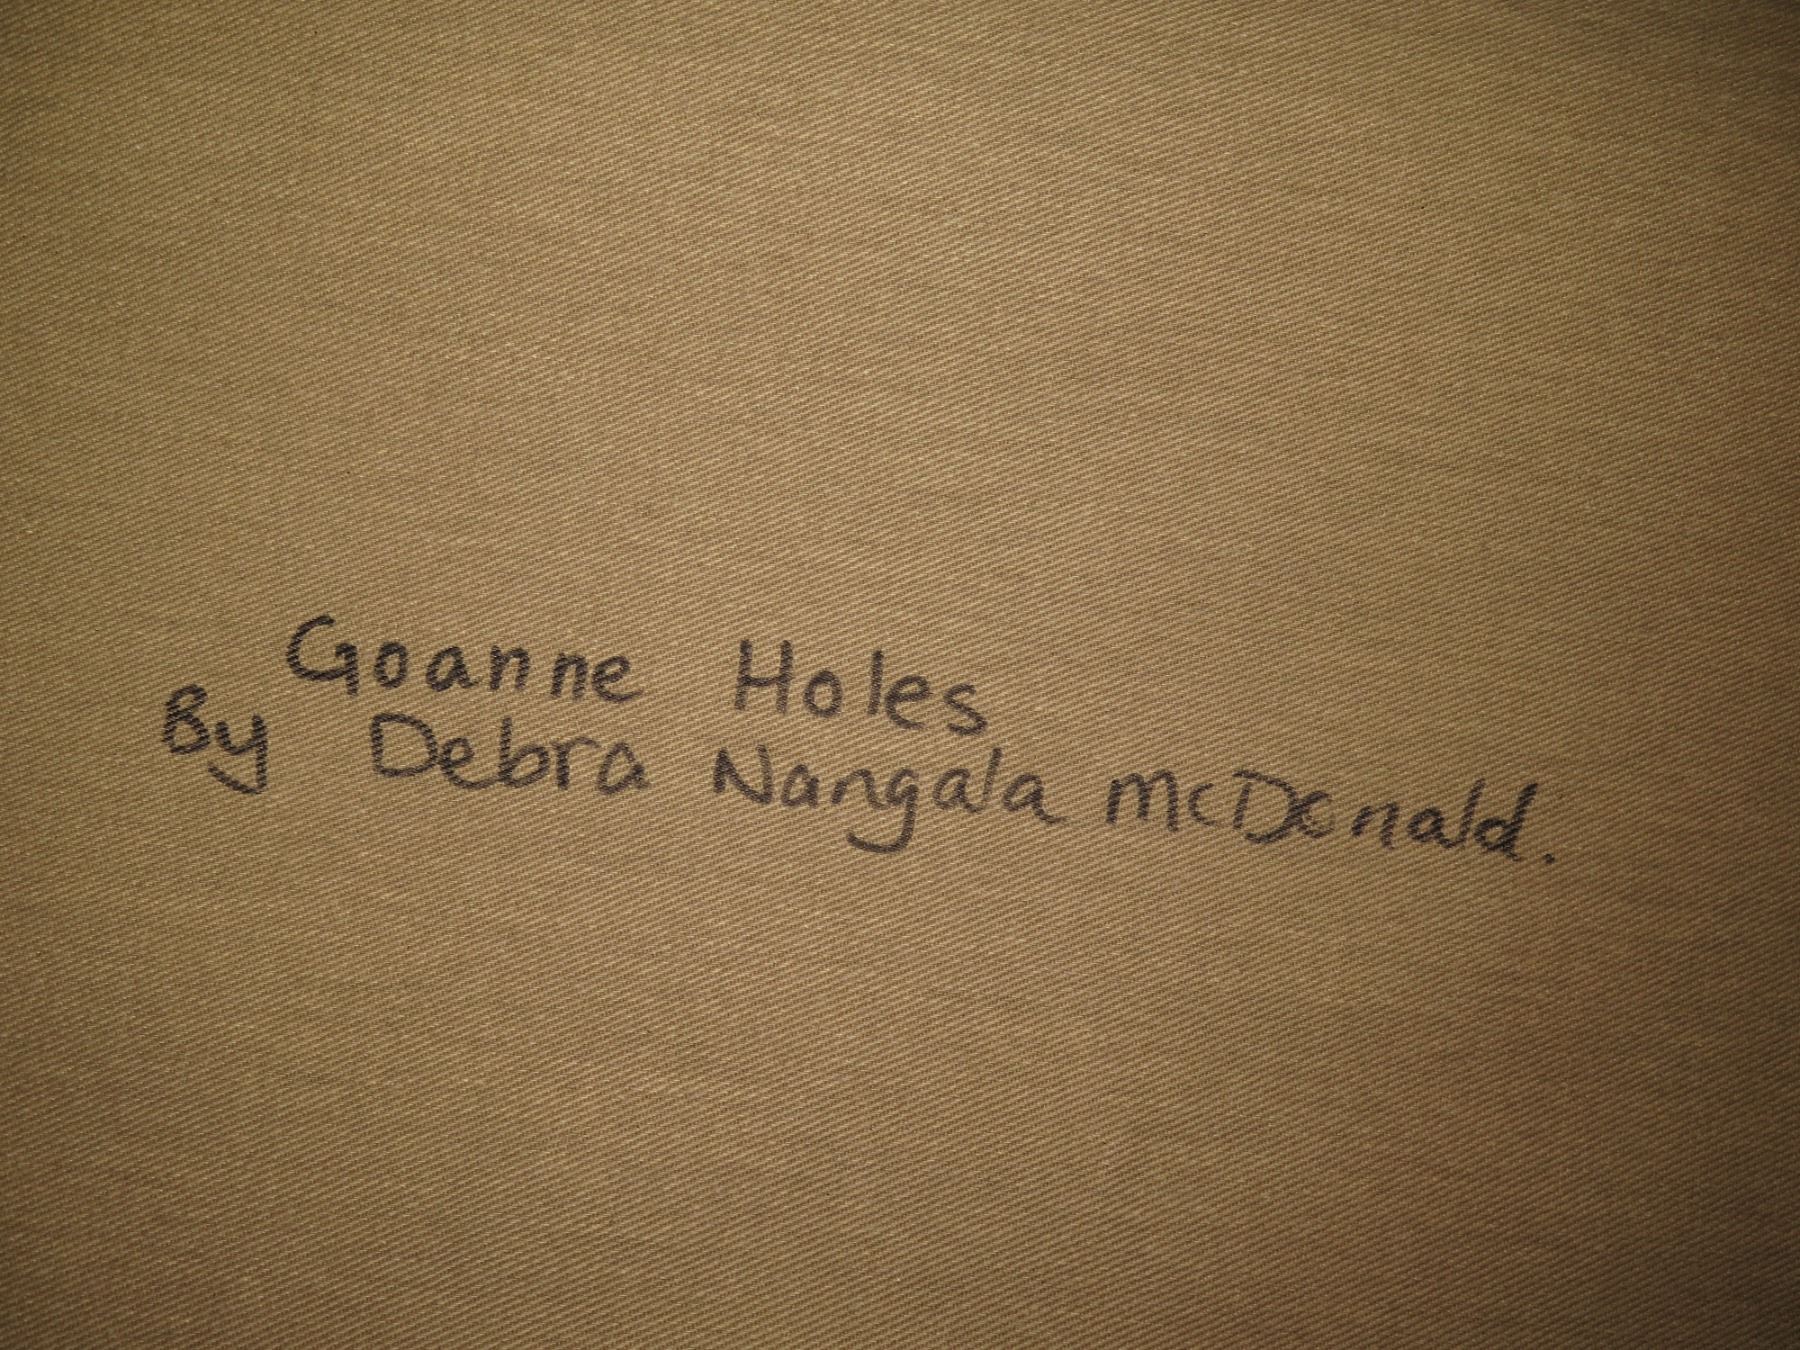 Goanne Holes
By Debra Nangala McDonald.